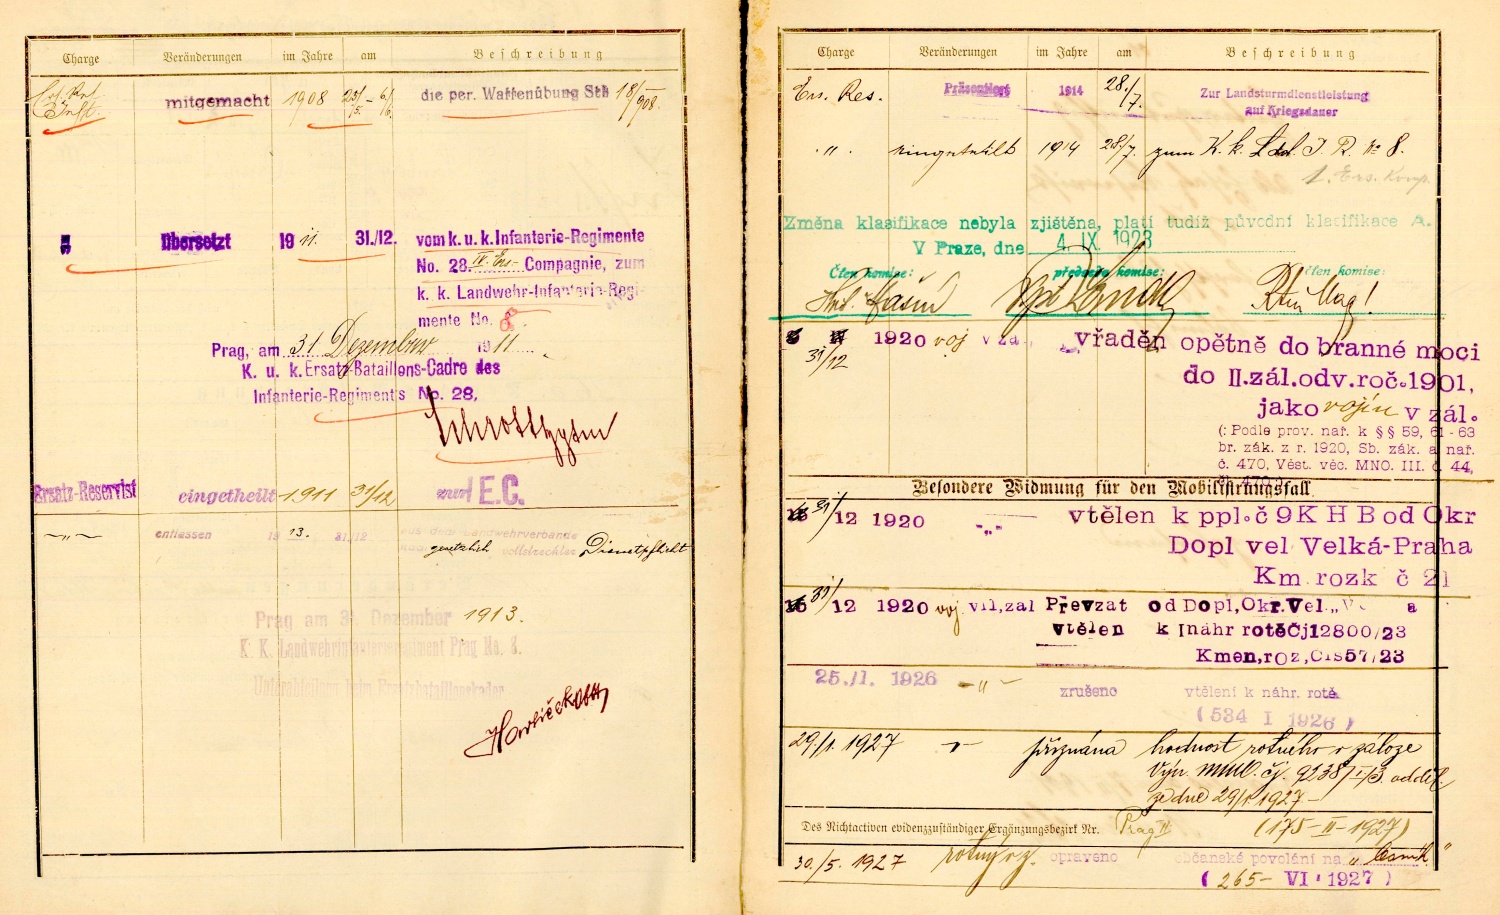 Charge Veränderungen im Jahre am Beschreibung
mitgemacht 1908 die per. Waffenübung Stb 18/
Inft. 908.
Übersetzt 1911. 31./12. vom k. u. k. Infanterie-Regimente
No. 28. IV. Ers- Compagnie, zum
k. k. Landwehr-Infanterie-Regi-
mente No. 8.
Prag, am 31 Dezember 1911.
K. u. k. Ersatz-Bataillons-Cadre des
Infanterie-Regiments No. 28,
Ersatz-Reservist eingetheilt 1911 31/12 zum E.C.
-"- entlassen 1913. 31./12. aus dem Landwehrverbande
gesetzlich vollstreckter Dienstpflicht
Prag am 31. Dezember 1913.
K. K. Landwehrinfanterieregiment Prag No. 8.
Unterabteilung beim Ersatzbataillonskader
Charge Veränderungen im Jahre am Beschreibung
Ers. Res. Präsentiert 1914 28./7. Zur Landsturmdienstleistung
auf Kriegsdauer
." . eingeteilt 1914 28/7. zum K. k. Ldst. I. R. No 8.
1. Ers. Komp.
Změna klasifikace nebyla zjištěna, platí tudíž původní klasifikace A.
V Praze, dne 4 IX 1923
Člen komise: předseda komise: člen komise:
31/12 1920 voj v zál. vřaděn opětně do branné moci
do II.zál.odv.roč.1901,
jako vojín v zál.
(:Podle prov. nař. k §§ 59, 61-63
br. zák. z r. 1920, Sb. zák. a nař.
č. 470, Věst. věc. MNO. III. č. 44,
Besondere Widmung für den Mobilisirungsfall
31/12 1920 -"- vtělen k ppl.č 9 K H B od Okr
Dopl vel Velká-Praha
Km rozk č 21
31/12 1920 voj v II,zál Převzat od Dopl,Okr.Vel.,,
vtělen k Inahr rotě Čj12800/23
Kmen,roz,čis57/23
25./I. 1926 -"- zrušeno vtělení k náhr. rotě.
(534 I 1926)
29/1. 1927 -"- přiznána hodnost rotného v záloze
Výn. MNO. čj. 9238/I/3. odděl.
ze dne 29/1 1927 -
Des Nichtactiven evidenzzuständiger Ergänzungsbezirk Nr. Prag II (175-II-1927)
30./5. 1927 rotný v z. opraveno občanské povolání na „
(265- VI 1927)